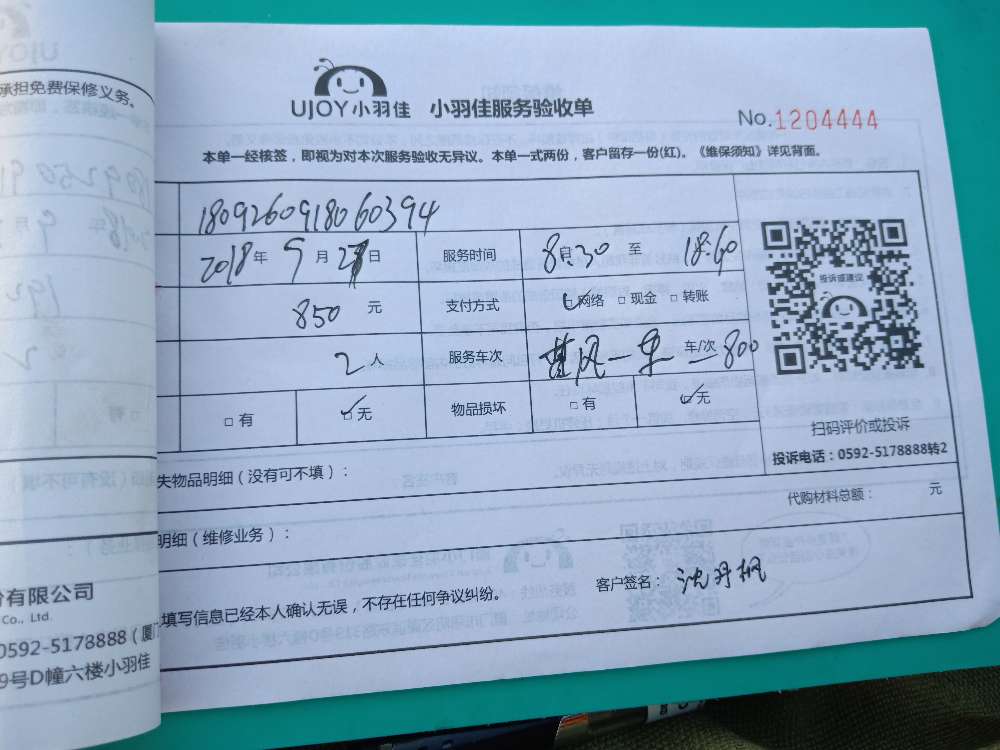 承担免费保修义务。
UJOY小羽佳 小羽佳服务验收单
No.1204444
本单一经核签，即视为对本次服务验收无异议。本单一式两份，客户留存一份(红)。《维保须知》详见背面。
1809260918060394
2018年 9月 日 服务时间 8 :30 至
850 元 支付方式 网络 □ 现金 □ 转账
2 人 服务车次 车/次 800
□ 有 □ 无 物品损坏 □ 有 □ 无
投诉或建议
扫码评价或投诉
投诉电话：0592-5178888转2
失物品明细（没有可不填）：
代购材料总额： 元
明细（维修业务）：
填写信息已经本人确认无误，不存在任何争议纠纷。
客户签名： 沈丹枫
份有限公司
Co., Ltd.
0592-5178888（厦门
9号D幢六楼小羽佳